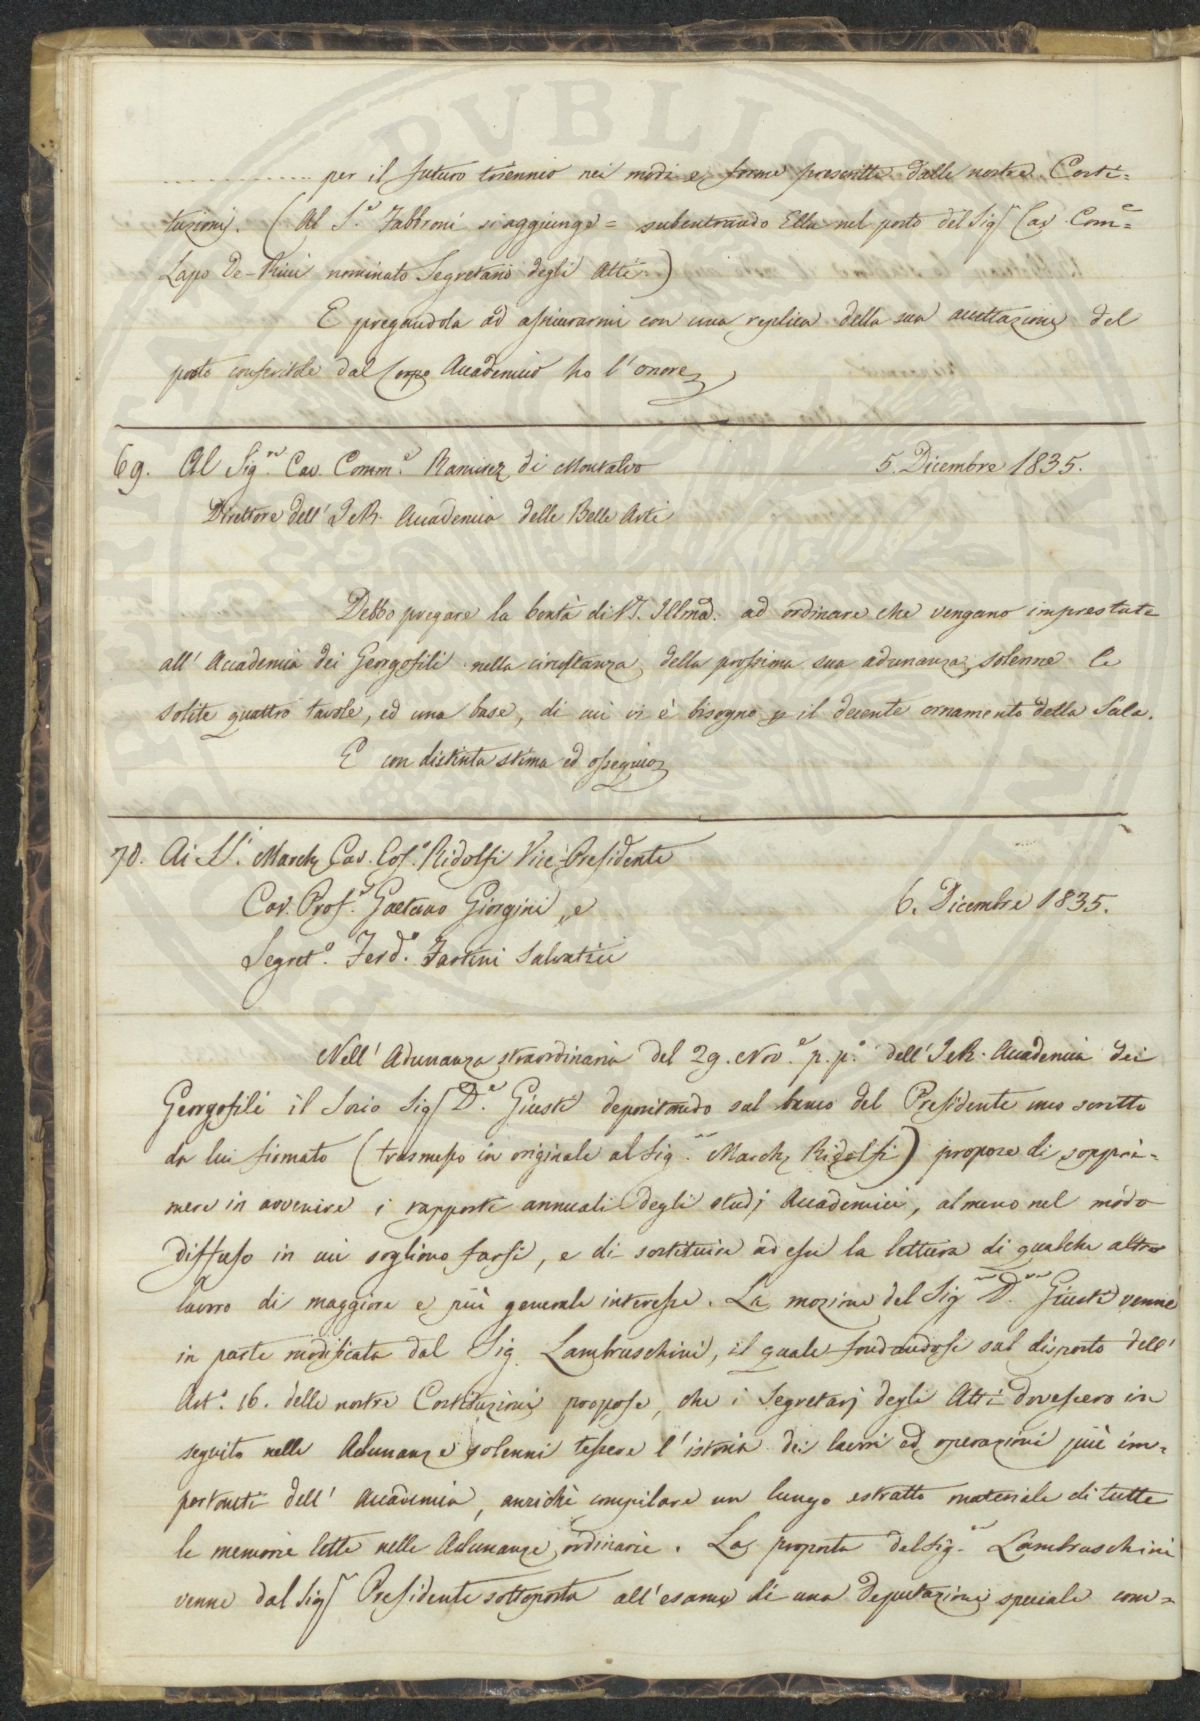 ............... per il futuro triennio nei modi e forme prescritte dalle nostre Costi=
tuzioni. (Al S.r Fabbroni si aggiunge = subentrando Ella nel posto del Sig.r Cav. Com.e
Lapo De-Ricci nominato Segretario degli Atti.)
E pregandola ad assicurarmi con una replica della sua accettazione del
posto conferitole dal Corpo Accademico ho l'onore
69. Al Sig.re Cav. Comm.e Ramirez di Montalvo 5. Dicembre 1835.
Direttore dell' I e R. Accademia delle Belle Arti
Debbo pregare la bontà di V.S. Illma. ad ordinare che vengano imprestate
all' Accademia dei Georgofili nella circostanza della prossima sua adunanza solenne le
solite quattro tavole, ed una base, di cui vi è bisogno p il decente ornamento della Sala.
E con distinta stima ed ossequio
70. Ai SS.i March. Cav. Cos.o Ridolfi Vice-Presidente
Cav. Prof.e Gaetano Giorgini, e 6. Dicembre 1835.
Segret.o Ferd.o Tartini Salvatici
Nell' Adunanza straordinaria del 29. Nov.e p.p.o dell' I e R. Accademia dei
Georgofili il Socio Sig.r D.e Giusti depositando sul banco del Presidente uno scritto
da lui firmato (trasmesso in originale al Sig.re March. Ridolfi) propose di soppri=
mere in avvenire i rapporti annuali degli studj Accademici, almeno nel módo
diffuso in cui sogliono farsi, e di sostituire ad essi la lettura di qualche altro
lavoro di maggiore e più generale interesse. La mozione del Sig.re D.re Giusti venne
in parte modificata dal Sig. Lambruschini, il quale fondandosi sul disposto dell'
Art.o 16. delle nostre Costituzioni propose, che i Segretarj degli Atti dovessero in
seguito nelle Adunanze solenni tessere l'istoria dei lavori ed operazioni più im=
portanti dell' Accademia, anzichè compilare un lungo estratto materiale di tutte
le memorie lette nelle Adunanze ordinarie. La proposta del Sig.re Lambruschini
venne dal Sig.r Presidente sottoposta all'esame di una Deputazione speciale com=